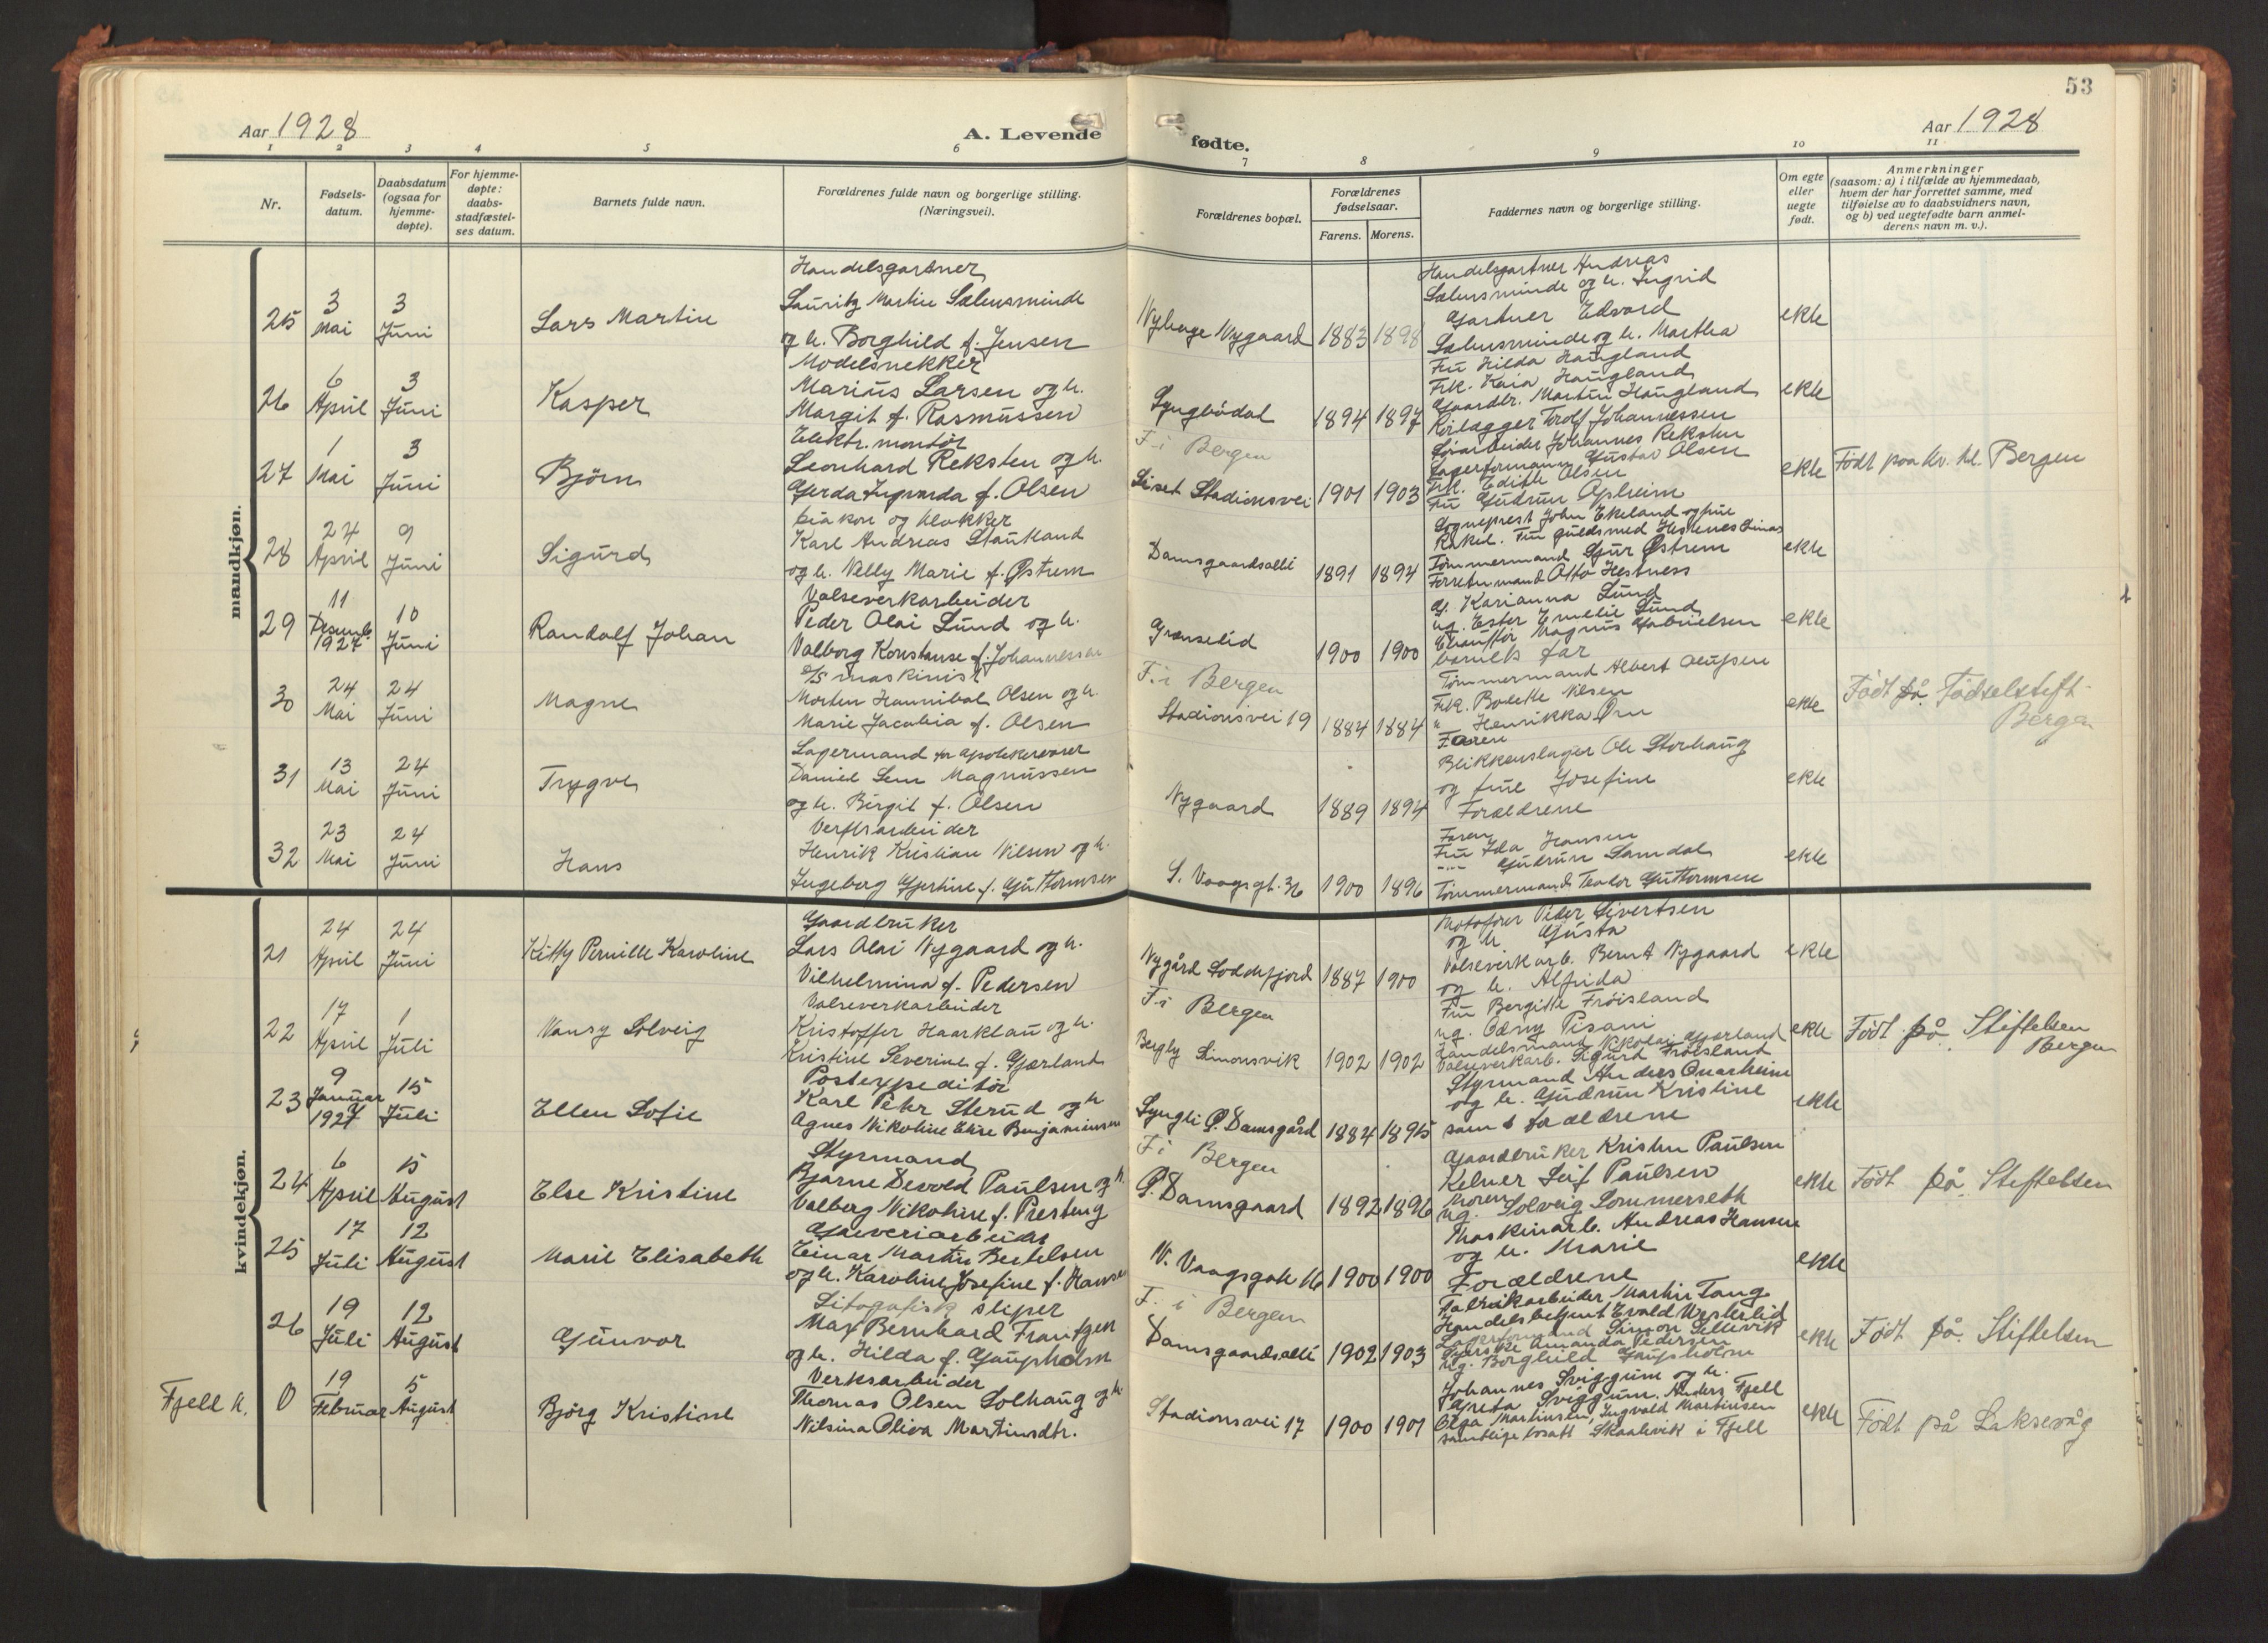 53
Aar 1928
A. Levende
fødte.
Aar 1928
1 2 3 4 5 6 7 8 9 10 11
Nr.
Fødsels-
datum.
Daabsdatum
(ogsaa for
hjemme-
døpte).
For hjemme-
døpte:
daabs-
stadfæstel-
ses datum.
Barnets fulde navn.
Forældrenes fulde navn og borgerlige stilling.
(Næringsvei).
Forældrenes bopæl.
Forældrenes
fødselsaar.
Farens. Morens.
Faddernes navn og borgerlige stilling.
Om egte
eller
uegte
født.
Anmerkninger
(saasom: a) i tilfælde av hjemmedaab,
hvem der har forrettet samme, med
tilføielse av to daabsvidners navn,
og b) ved uegtefødte barn anmel-
derens navn m. v.).
mandkjøn.
25
3
Mai
3
Juni
Lars Martin
Handelsgartner
Lauritz Martin Sælensminde
og h. Borghild f. Jensen
Nyhage Nygaard
1883 1898
Handelsgartner Andreas
Sælensminde og h. Ingrid
Gartner Edvard
Sælensminde og h. Martha
ekte
26
6
April
3
Juni
Kasper
Modelsnekker
Marius Larsen og h.
Margit f. Rasmussen
Lyngbödal
1894 1897
Fru Hilda Haugland
Frk. Kaia Haugland
Gaardbr. Martin Haugland
Rörlægger Trolf Johannessen
ekte
27
1
Mai
3
Juni
Björn
Elektr. montör
Leonhard Reksten og h.
Gjerda Ingvarda f. Olsen
F. i Bergen
Liset Stadionsvei
1901 1903
Johannes Reksten
Lagerformann Gustav Olsen
Frk. Edith Olsen
Fru Gudrun Apheim
ekte
Födt paa kv. kl. Bergen
28
24
April
9
Juni
Sigurd
Diakon og klokker
Karl Andreas Staukland
og h. Nelly Marie f. Østrem
Damsgaardsallé
1891 1894
Sogneprest John Ekeland og frue
Rakel. Fru guldsmed Hestenes
Tømmermand Sjur Østrem
Forretn.mand Otto Hestness
ekte
29
11
Desemb.
1927
10
Juni
Randolf Johan
Valseverkarbeider
Peder Olai Lund og h.
Valborg Konstanse f. Johannessen
Grænselid
1900 1900
g. Karianna Lund
ug. Ester Emelie Lund
Chauffør Magnus Gabrielsen
barnets far
ekte
30
24
Mai
24
Juni
Magne
D/S maskinist
Morten Hannibal Olsen og h.
Marie Jacobia f. Olsen
F. i Bergen
Stadionsvei 19
1884 1884
Tømmermand Albert
Frk. Bolette Nilsen
" Henrikka Örn
Faren
ekte
Födt på Fødselstift
Bergen
31
13
Mai
24
Juni
Trygve
Lagermand for apotekervarer
Daniel Sem Magnussen
og h. Birgit f. Olsen
Nygaard
1889 1894
Blikkenslager Ole Storhaug
og frue Josefine
Forældrene
ekte
32
23
Mai
24
Juni
Hans
Verftsarbeider
Henrik Kristian Nilsen og h.
Ingeborg Gjertine f. Guttormsen
S. Vaagsgt. 36
1900 1896
Faren
Fru Ida Hansen
" Gudrun Samdal
Tömmermand Teodor Guttormsen
ekte
kvindekjøn.
21
24
April
24
Juni
Kitty Pernille Karoline
Gaardbruker
Lars Olai Nygaard og h.
Vilhelmina f. Pedersen
Nygård Loddefjord
1887 1900
Motofører Peder Sivertsen
og h. Gusta
Valseverkarb. Bernt Nygaard
og h. Alfrida
ekte
22
17
April
1
Juli
Nansy Solveig
Valseverkarbeider
Kristoffer Haarklau og h.
Kristine Severine f. Gjærland
F. i Bergen
Bergly Simonsvik
1902 1902
Fru Bergitte Fröisland
ug. Pisani
Handelsmand Nikolai Gjærland
Valseverkarb. Sigurd Fröisland
ekte
Födt på Stiftelsen
Bergen
23
9
Januar
1927
15
Juli
Ellen Sofie
Postexpeditör
Karl Peter Sterud og h.
Agnes Nikoline Elise Benjaminsen
Lyngli Ø. Damsgård
1884 1895
Styrmand Anders Qvarheim
og h. Gudrun Kristine
samt forældrene
ekte
24
6
April
15
August
Else Kristine
Styrmand
Bjarne Devold Paulsen og h.
Valborg Nikoline f. Presteng
F. i Bergen
Ø. Damsgaard
1892 1896
Gaardbruker Kristen Paulsen
Kelner Leif Paulsen
Moren
ug. Solveig Sommerseth
ekte
Födt på Stiftelsen
25
17
Juli
12
August
Marie Elisabeth
Garveriarbeider
Einar Martin Bertelsen
og h. Karoline Josefine f. Hansen
N. Vaagsgate 16
1900 1900
Maskinarb. Andreas Hansen
og h. Marie
Forældrene
ekte
26
19
Juli
12
August
Gunvor
Litografisk sliper
Max Bernhard Frantzen
og h. Hilda f. Gaupholm
F. i Bergen
Damsgaardsallé
1902 1903
Fabrikarbeider Martin Tang
Handelsbetjent Evald Westerlid
Lagerformand Simon Sellevik
Amanda Pedersen
ug. Borghild Gaupholm
ekte
Födt på Stiftelsen
Fjell k.
0
19
Februar
5
August
Björg Kristine
Verksarbeider
Thomas Olsen Solhaug og h.
Nilsina Oliva Martinsdtr.
Stadionsvei 17
1900 1901
Johannes Sviggum og h.
Greta Sviggum. Anders Fjell
Olga Martinsen, Ingvald Martinsen
samtlige bosatt Skaalevik i Fjell
ekte
Födt på Laksevåg